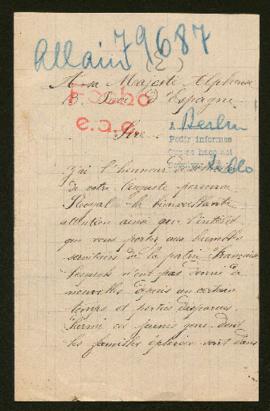 Allain 79687
(2)
A sa Majesté Alphonse
Fecho
Roi d'Espagne
e.o.e.
Sire
a Berlin
Pedir informes
J'ai l'honneur de
de votre Auguste personne
Royal la bienveillante
attention ainsi que l'intérêt
que vous portez aux humbles
serviteurs de la patrie française
n'ont pas donné de
nouvelles depuis un certain
temps et portés disparus.
Parmi ces jeunes gens dont
les familles éplorées sont dans